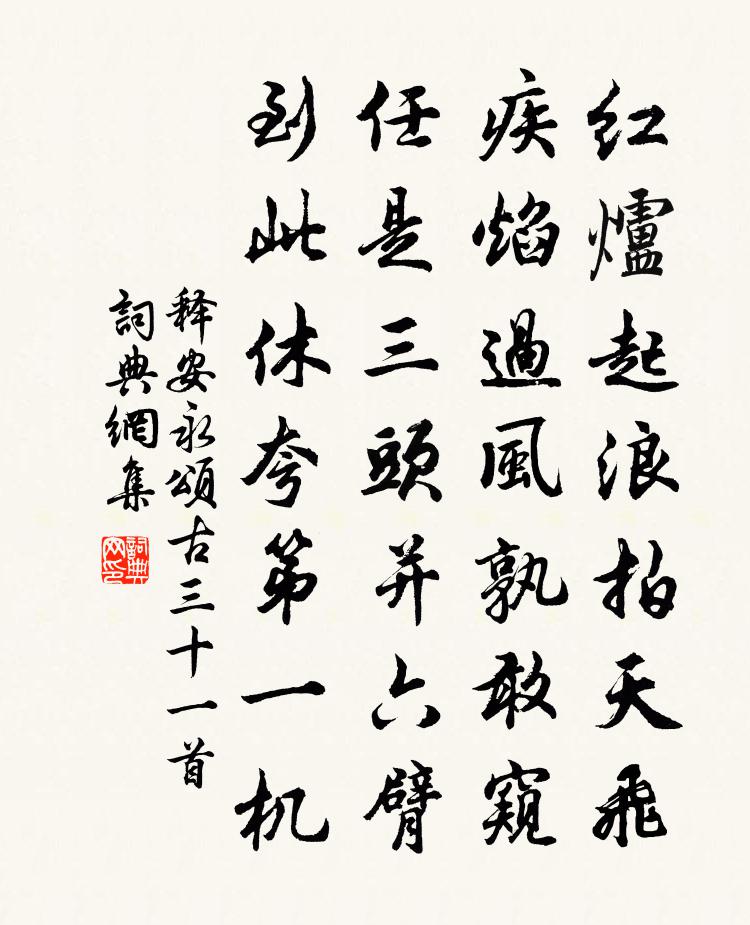 红爐起浪拍天飛
疾焰過風孰敢窺
任是三頭并六臂
到此休夸第一机
释安永頌古三十一首
詞典網集
詞典网印